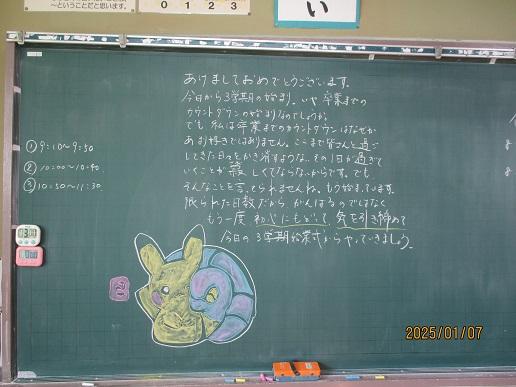 ～ということだと思います。
0 1 2 3
い
あけましておめでとうございます。
今日から3学期の始まり。いや卒業までの
カウントダウンの始まりなのでしょうか。
でも私は卒業までのカウントダウンはなぜか
あまり好きではありません。ここまで皆さんと過ご
してきた日々をかき消すような、その1日が過ぎて
いくことが寂しくてならないからです。でも
そんなことを言ってられませんね。もう始まっています。
限られた日数だからがんばるのではなく
もう一度初心にもどって気を引き締めて
今日の3学期始業式からやっていきましょう。
① 9:10～9:50
② 10:00～10:40
③ 10:50～11:30
2025/01/07